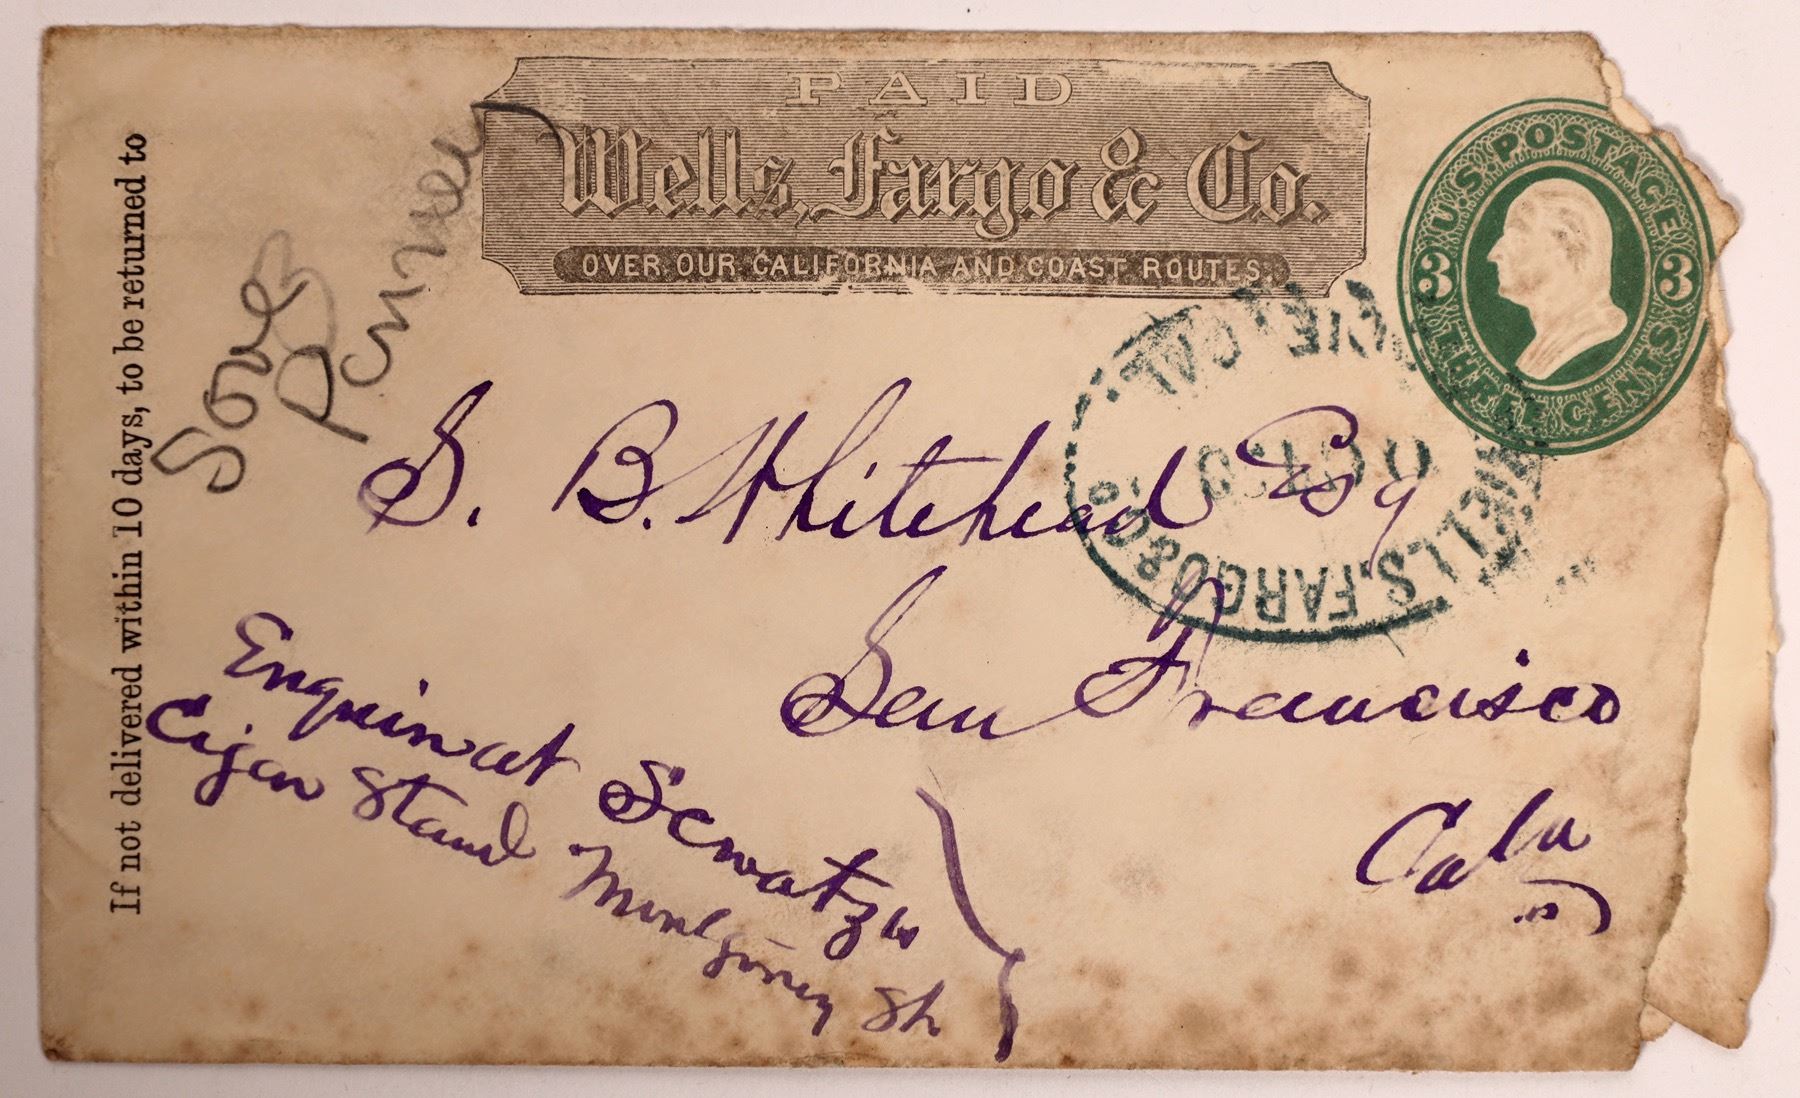 PAID
Wells, Fargo & Co.
OVER OUR CALIFORNIA AND COAST ROUTES.
U.S. POSTAGE
3 3
THREE CENTS
If not delivered within 10 days, to be returned to
WELLS, FARGO & CO.
OCT 30
CAL.
S. B. Whitehead Esq
San Francisco
Cala
Enquire at Scwatzs
Cigar Stand Montgomey St.